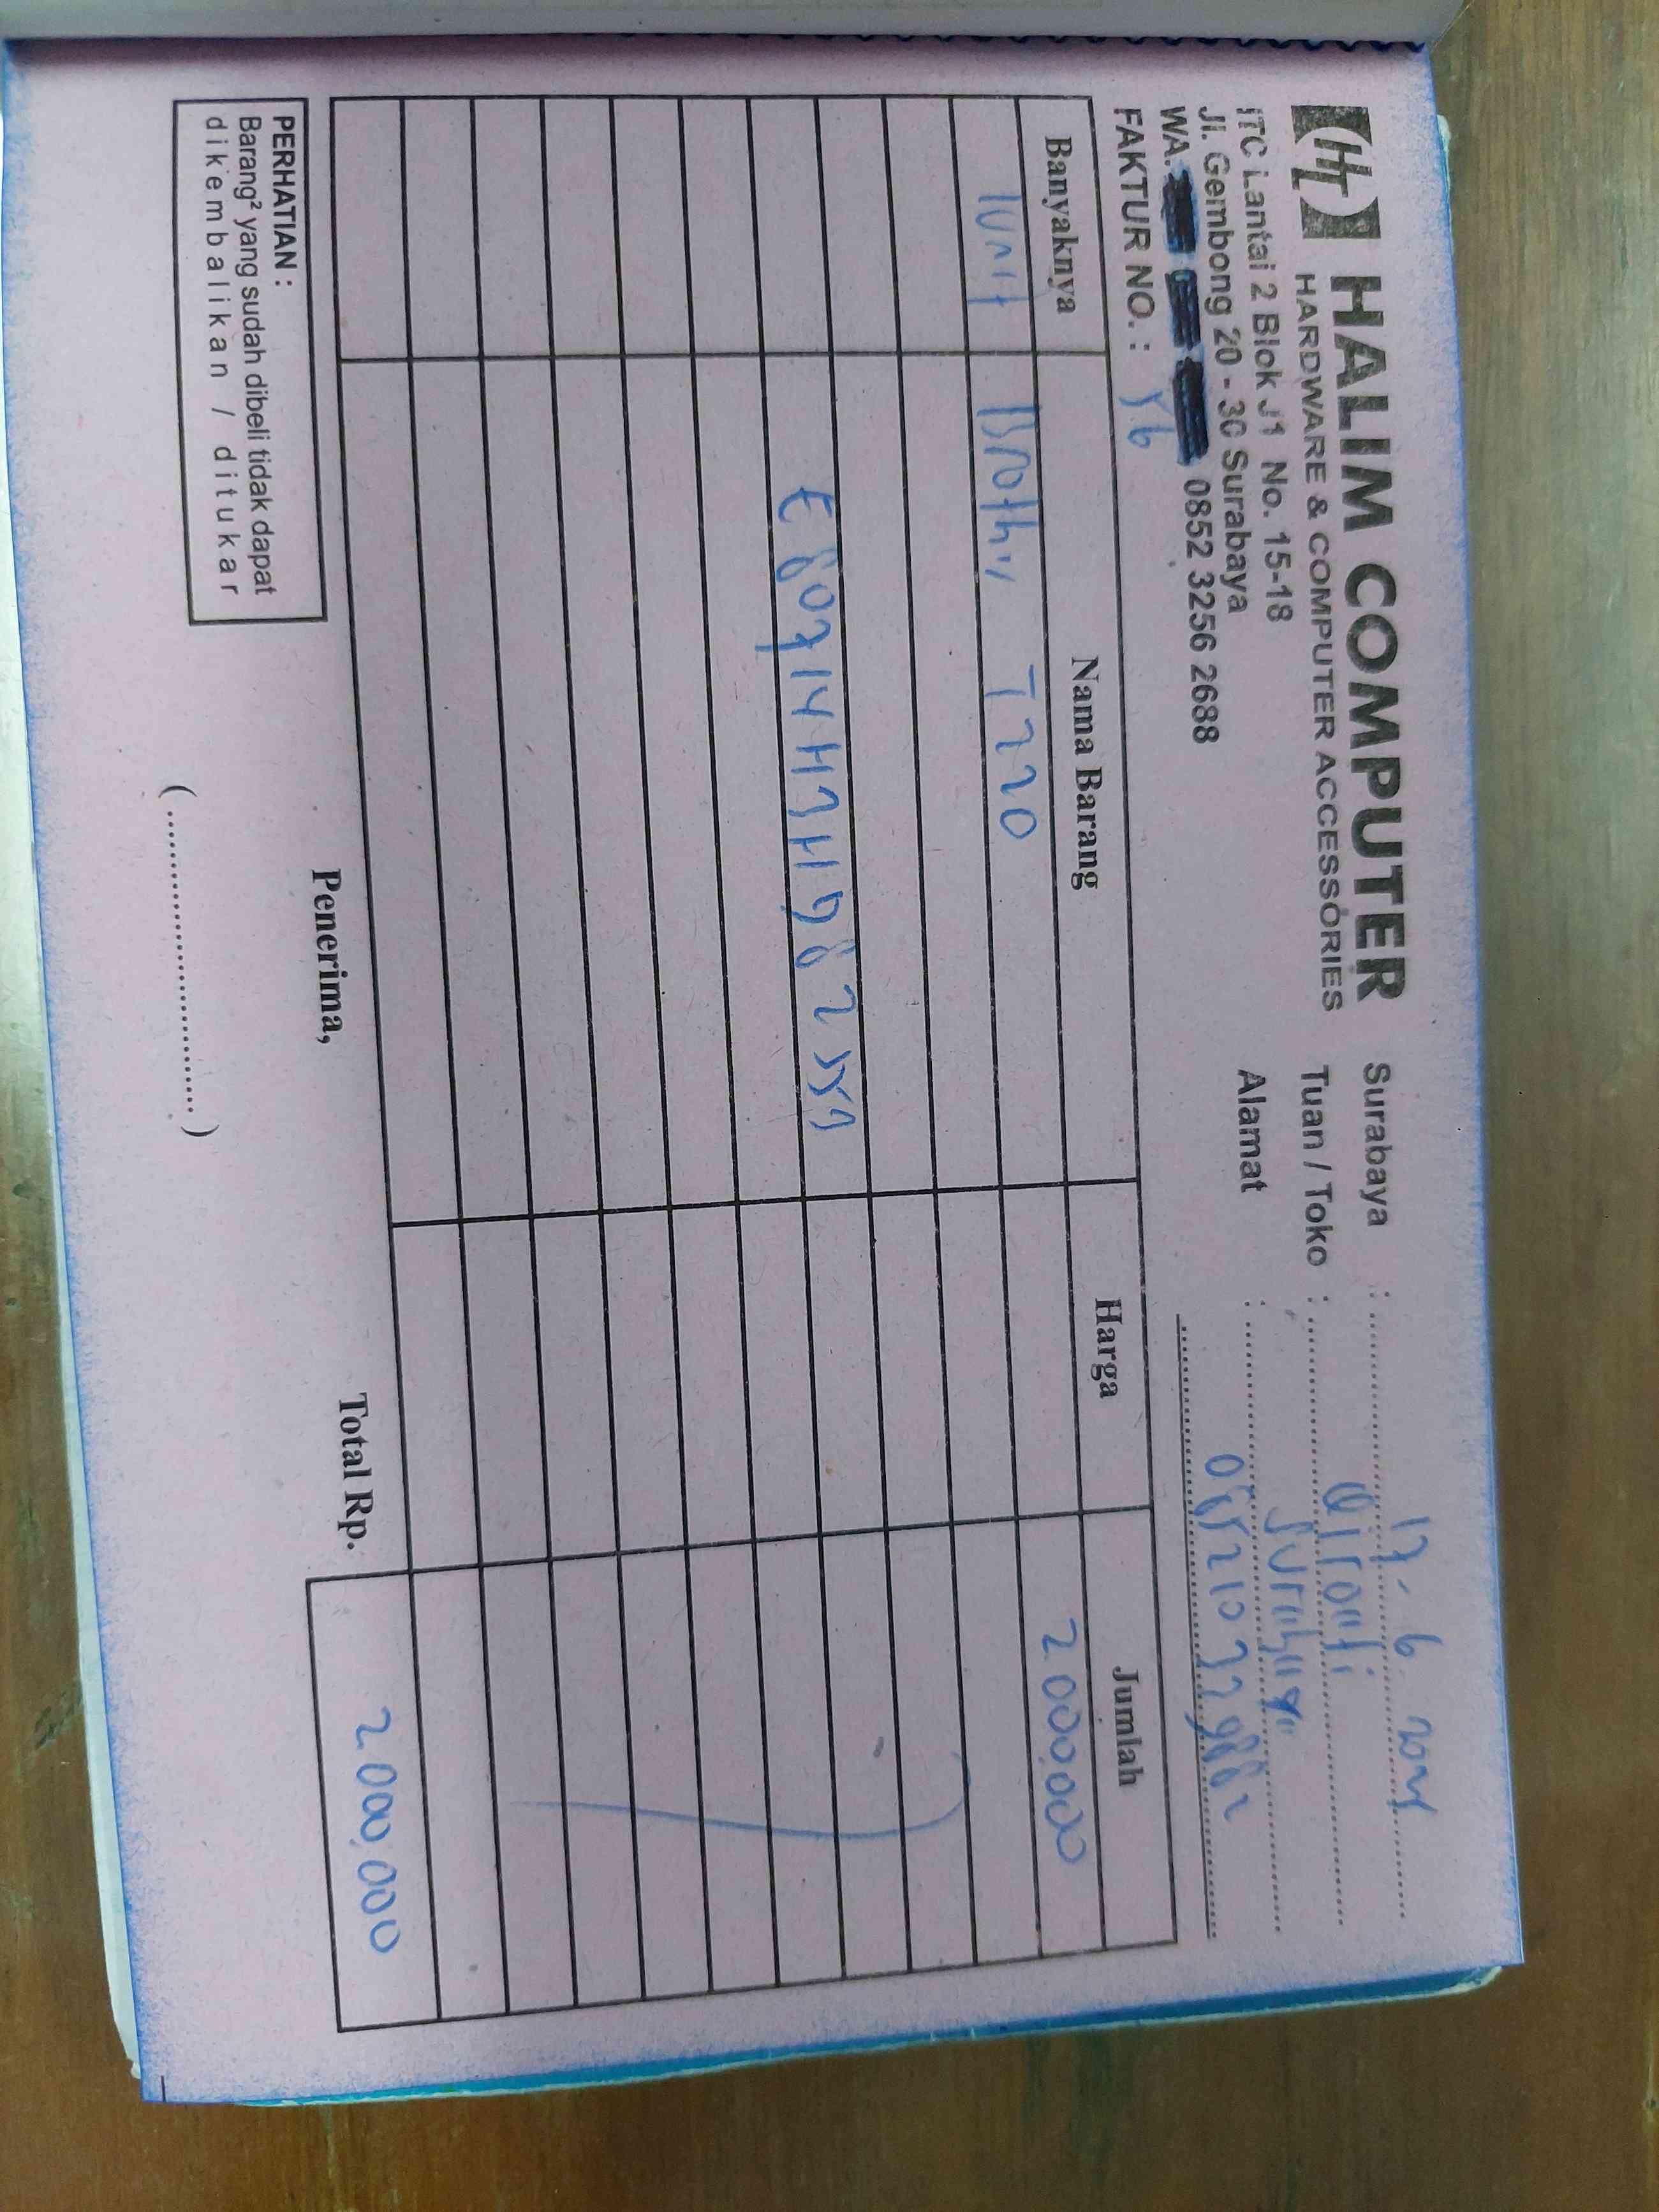 HT HALIM COMPUTER
HARDWARE & COMPUTER ACCESSORIES
ITC Lantai 2 Blok J1 No. 15-18
Jl. Gembong 20 - 30 Surabaya
WA. 0852 3256 2688
FAKTUR NO. :
Surabaya : 17 - 6
Tuan / Toko :
Alamat : Surabaya
Banyaknya Nama Barang Harga Jumlah
1 unit Brother T220 2.000.000
Total Rp. 2.000.000
Penerima,
(..............................)
PERHATIAN :
Barang² yang sudah dibeli tidak dapat
dikembalikan / ditukar